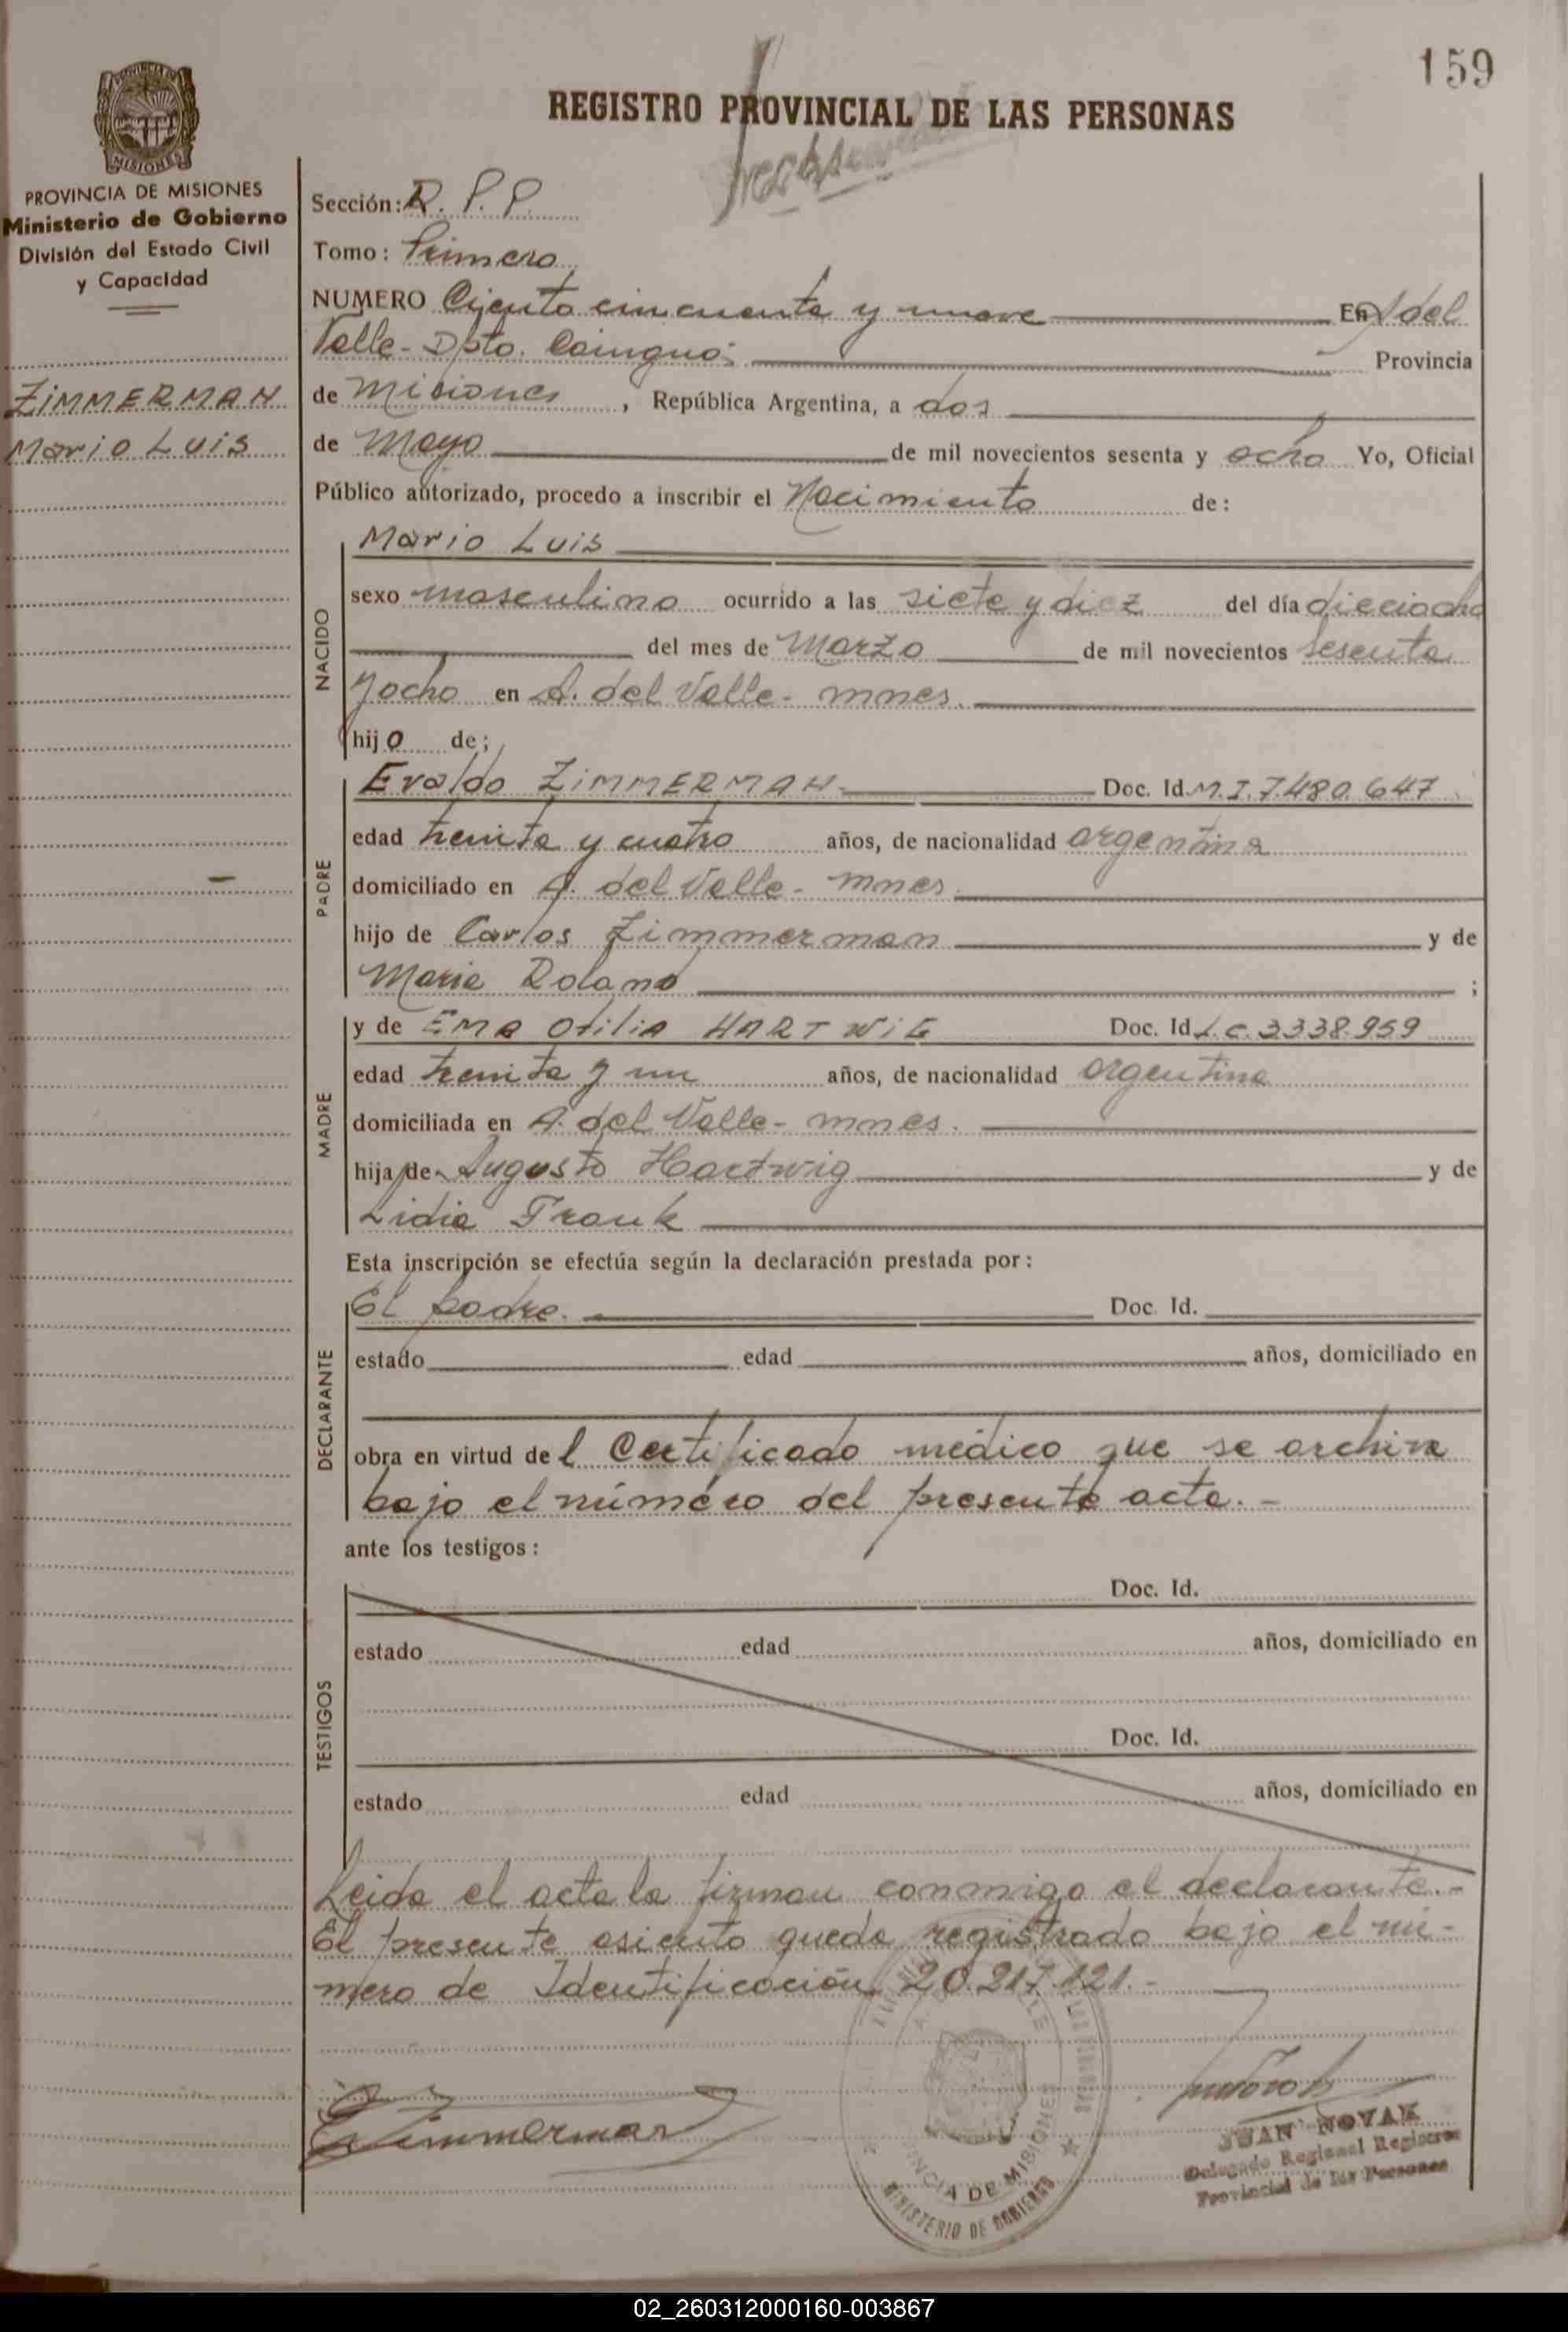 159
REGISTRO PROVINCIAL DE LAS PERSONAS
PROVINCIA DE MISIONES
Ministerio de Gobierno
División del Estado Civil
y Capacidad
ZIMMERMAN
Mario Luis
Sección: R. P. P.
Tomo: Primero
NUMERO Ciento cincuenta y nueve En A del
Valle - Dpto. Cainguás Provincia
de Misiones, República Argentina, a dos
de Mayo de mil novecientos sesenta y ocho Yo, Oficial
Público autorizado, procedo a inscribir el Nacimiento de:
NACIDO
Mario Luis
sexo masculino ocurrido a las siete y diez del día dieciocho
del mes de Marzo de mil novecientos sesenta
y ocho en A. del Valle - mnes.
hijo de;
PADRE
Evaldo ZIMMERMAN Doc. Id. M.I. 7.480.647
edad treinta y cuatro años, de nacionalidad argentina
domiciliado en A. del Valle - mnes.
hijo de Carlos Zimmerman y de
Maria ;
MADRE
y de Ema Otilia HARTWIG Doc. Id. L.C. 3338.959
edad treinta y un años, de nacionalidad argentina
domiciliada en A. del Valle - mnes.
hija de Augusto Hartwig y de
Lidia Frank
Esta inscripción se efectúa según la declaración prestada por:
DECLARANTE
El padre. Doc. Id.
estado edad años, domiciliado en
obra en virtud del Certificado médico que se archiva
bajo el número del presente acta. -
ante los testigos:
TESTIGOS
Doc. Id.
estado edad años, domiciliado en
Doc. Id.
estado edad años, domiciliado en
Leida el acta la firman conmigo el declarante.-
El presente asiento queda registrado bajo el nú-
mero de Identificación 20.217.121.-
Zimmerman
JUAN NOVAK
Delegado Regional Registro
Provincial de las Personas
PROVINCIA DE MISIONES
MINISTERIO DE GOBIERNO
02_260312000160-003867